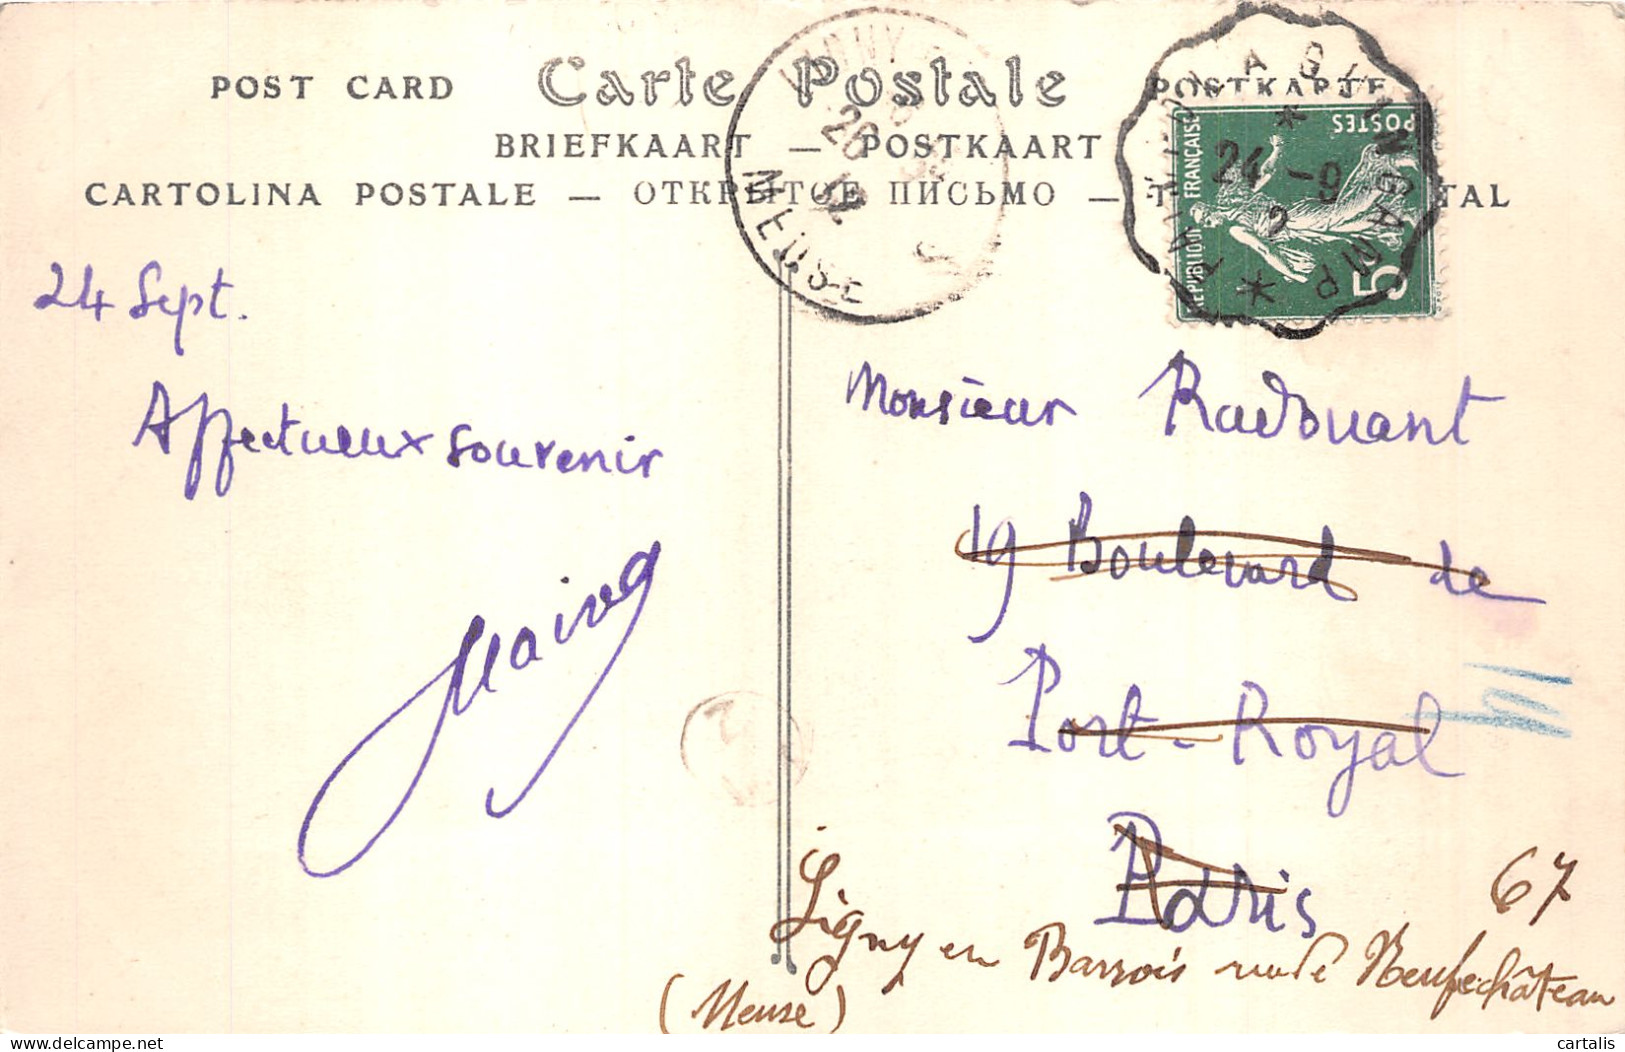 POST CARD Carte Postale POSTKARTE
BRIEFKAART — POSTKAART
CARTOLINA POSTALE — ОТКРЫТОЕ ПИСЬМО — TAL
LIGNY
26
12
MEUSE
PAIMPOL A GUINGAMP
24 -9
POSTES
REPUBLIQUE FRANÇAISE
5
24 Sept.
Affectueux souvenir
Monsieur Radouant
19 Boulevard de
Port-Royal
Paris
67
Ligny en Barrois rue de Neufchâteau
(Meuse)
cartalis
delcampe.net